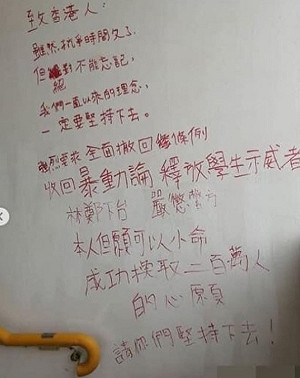 致香港人：
雖然抗爭時間久了，
但絕對不能忘記，
我們一直以來的理念，
一定要堅持下去。
強烈要求 全面撤回條例
收回暴動論 釋放學生示威者
林鄭下台 嚴懲警方
本人但願可以小命
成功換取二百萬人
的心願
請你們堅持下去！